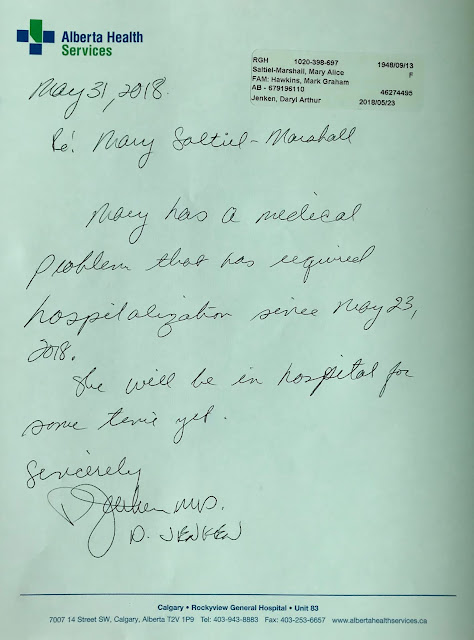 Alberta Health
Services
RGH 1020-398-697 1948/09/13
Saltiel-Marshall, Mary Alice F
FAM: Hawkins, Mark Graham
AB - 679196110 46274495
Jenken, Daryl Arthur 2018/05/23
May 31, 2018.
Re: Mary Saltiel-Marshall
Mary has a medical
problem that has required
hospitalization since May 23,
2018.
She will be in hospital for
some time yet.
Sincerely
DJenken MD.
D. JENKEN
Calgary • Rockyview General Hospital • Unit 83
7007 14 Street SW, Calgary, Alberta T2V 1P9 Tel: 403-943-8883 Fax: 403-253-6657 www.albertahealthservices.ca